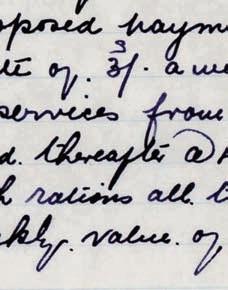 oposed payme
te of. 3/. a we
services from
d. thereafter a
h rations all. t
ekly. value. of